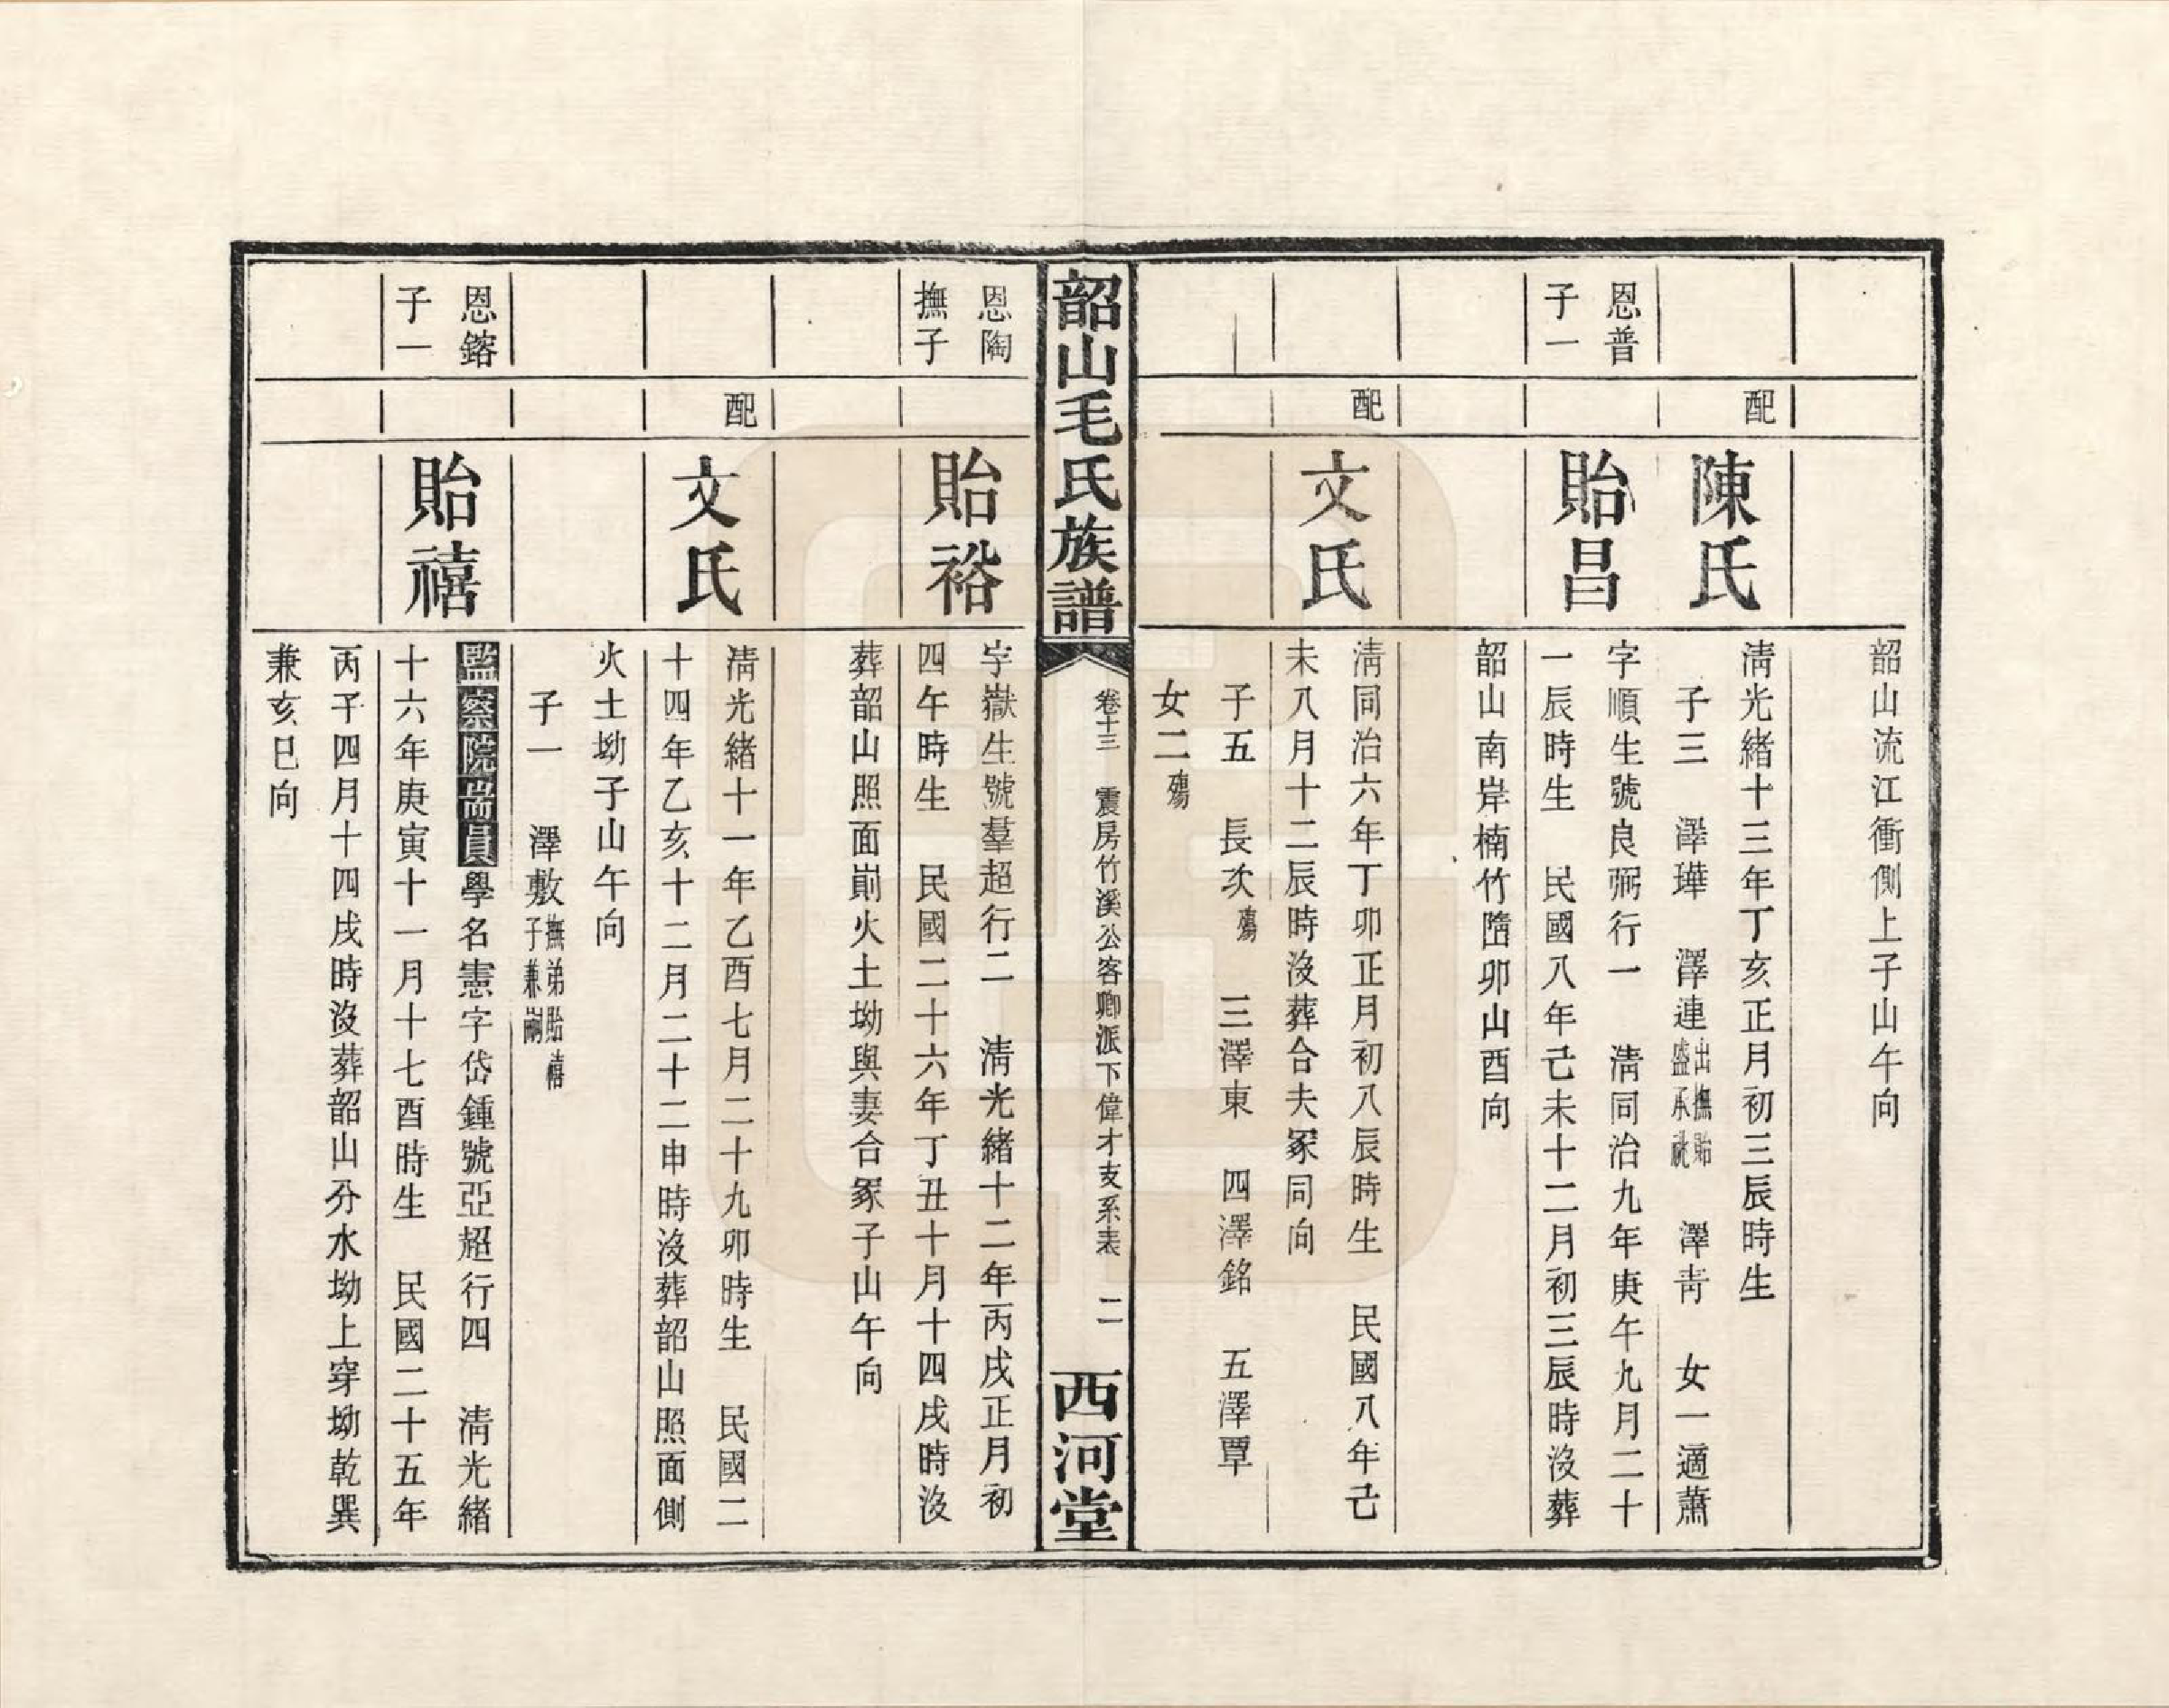 韶山流江衝側上子山午向
配
陳氏
淸光緒十三年丁亥正月初三辰時生
子三 澤璍 澤連出撫貽盛承祧 澤靑 女一適蕭
恩普
子一
貽昌
字順生號良弼行一 淸同治九年庚午九月二十
一辰時生 民國八年己未十二月初三辰時沒葬
韶山南岸楠竹㙮卯山酉向
配
文氏
淸同治六年丁卯正月初八辰時生 民國八年己
未八月十二辰時沒葬合夫冢同向
子五 長次殤 三澤東 四澤銘 五澤覃
女二殤
韶山毛氏族譜
卷十三 震房竹溪公客卿派下偉才支系表 二
西河堂
恩陶
撫子
貽裕
字嶽生號羣超行二 淸光緒十二年丙戌正月初
四午時生 民國二十六年丁丑十月十四戌時沒
葬韶山照面前火土坳與妻合冢子山午向
配
文氏
淸光緒十一年乙酉七月二十九卯時生 民國二
十四年乙亥十二月二十二申時沒葬韶山照面側
火土坳子山午向
子一 澤敷撫弟貽禧子兼嗣
恩鎔
子一
貽禧
監察院部員學名憲字岱鍾號亞超行四 淸光緒
十六年庚寅十一月十七酉時生 民國二十五年
丙子四月十四戌時沒葬韶山分水坳上穿坳乾巽
兼亥巳向